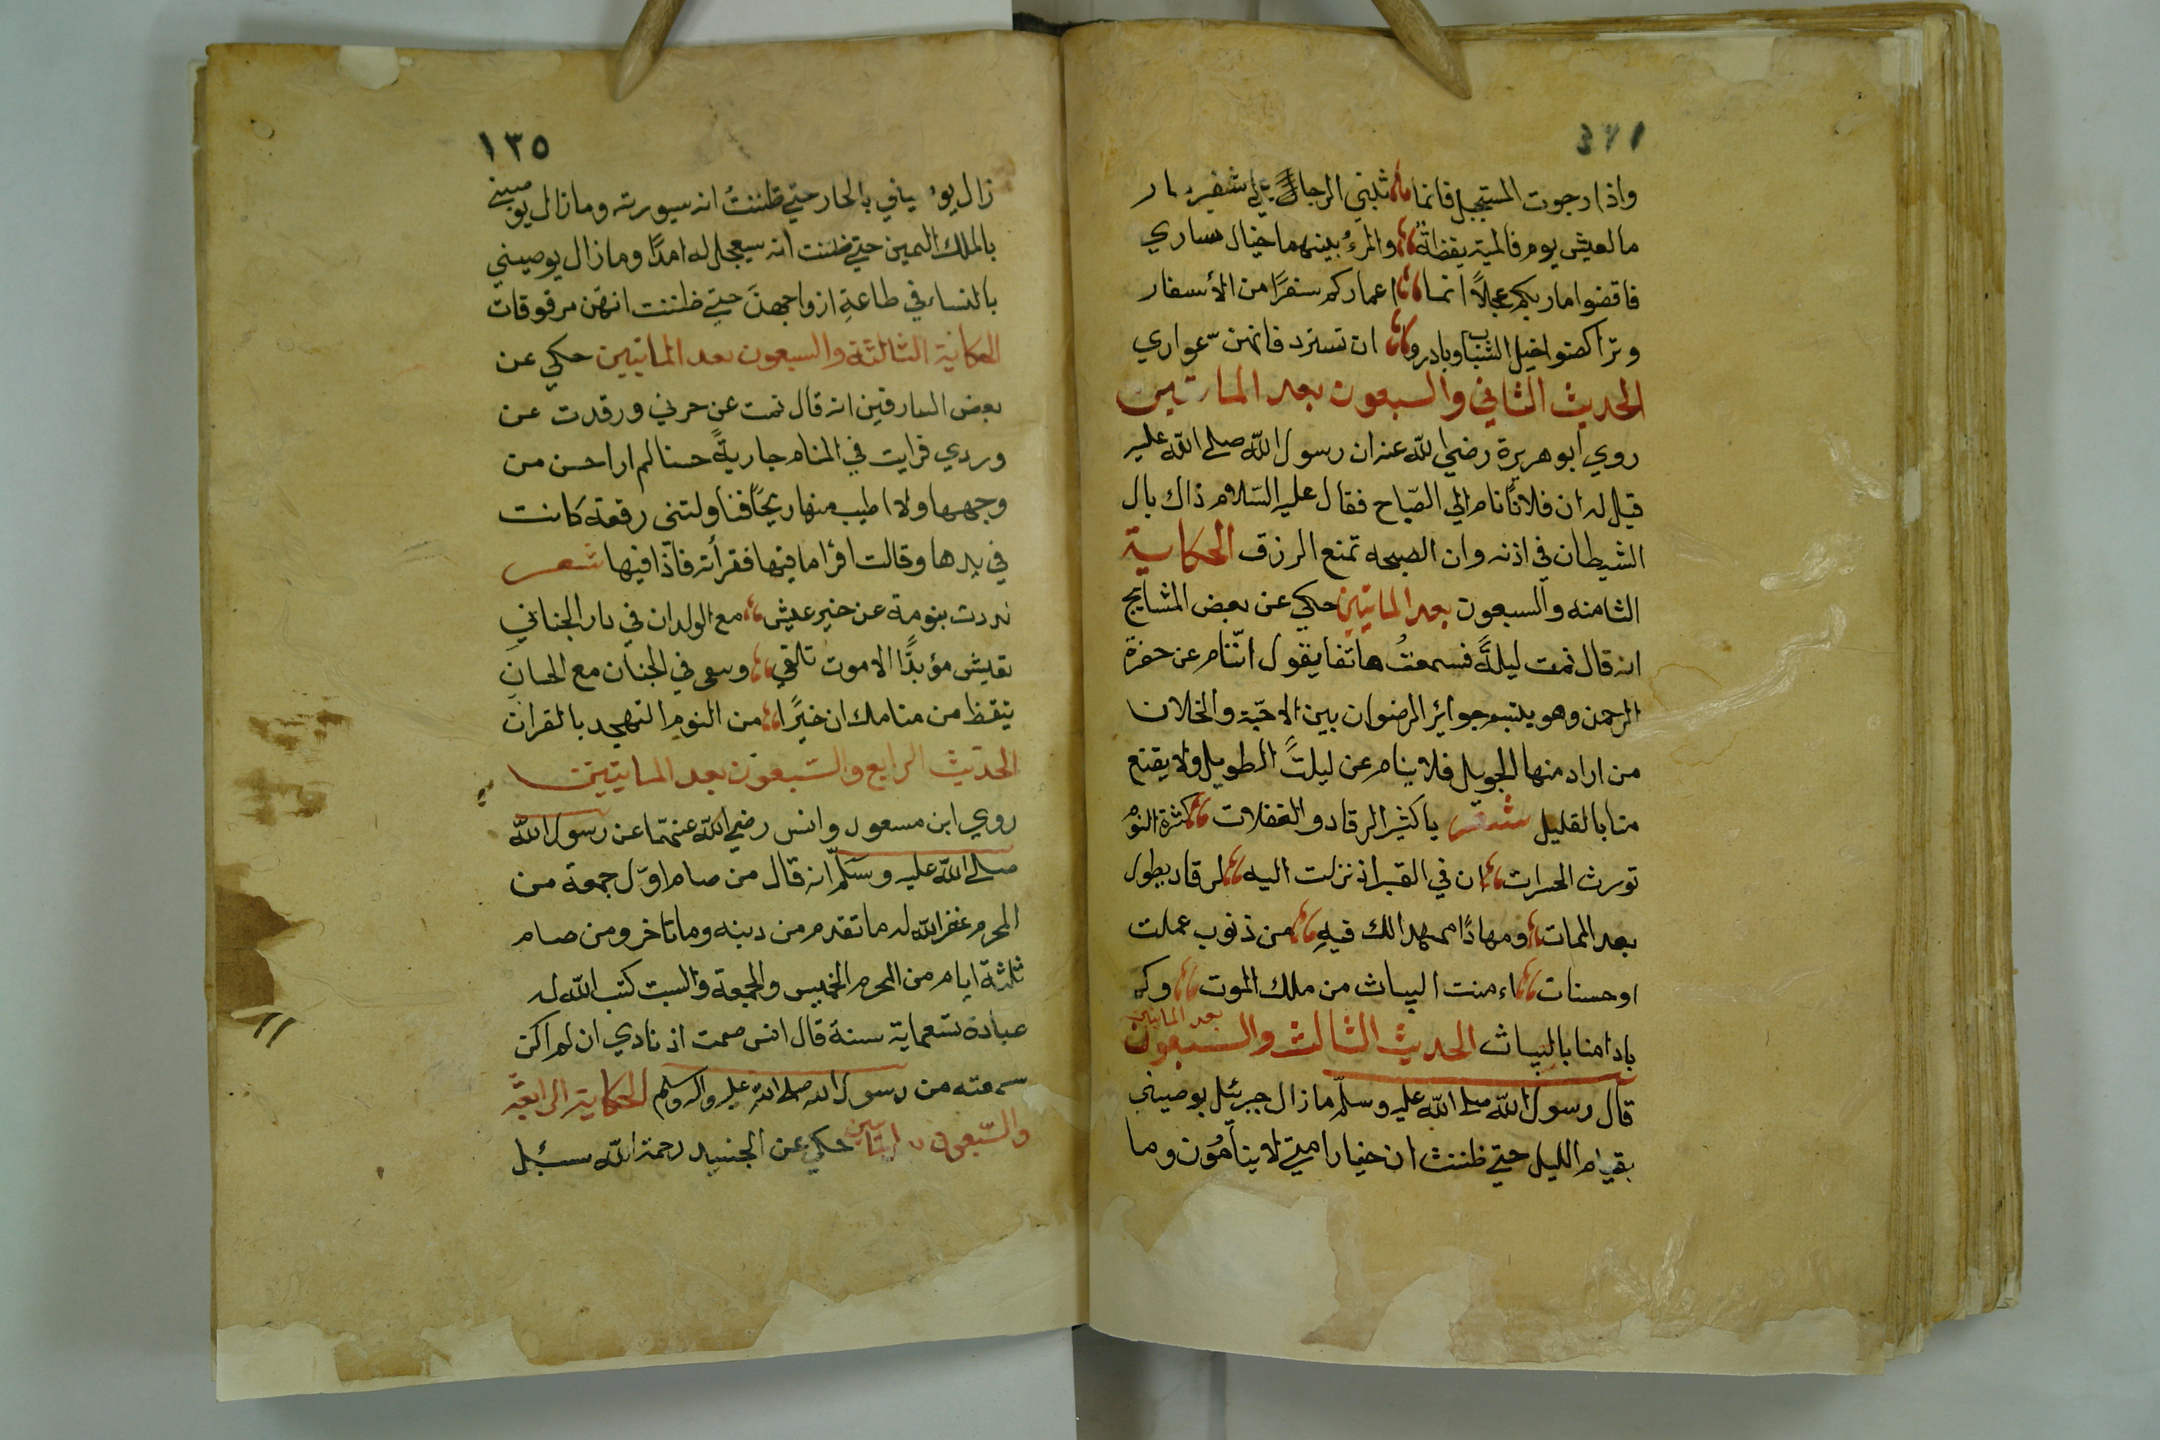 واذا رجوت المستجيل فانما ،، تبني الرجال على شفير
مالعيش يوم فالمية يقظاته ،، والمرءُ بينهما خيال ساري
فاقضوا ماربكم عجالاً انما ،، اعماركم سفرًا من الأسفار
وتراكضوا خيل الشباب وبادروا ،، ان تسترد فانهن عواري
الحديث الثاني والسبعون بعد الماتين
روي ابو هريرة رضي الله عنه ان رسول الله صلى الله عليه
قيل له ان فلانًا نام الي الصّباح فقال عليه السلام ذاك بال
الشيطان في اذنه وان الصبحه تمنع الرزق الحكاية
الثامنه والسبعون بعد الماتين حكي عن بعض المشايخ
انه قال نمت ليلةً فسمعتُ هاتفا يقول اتنام عن حضرة
الرحمن وهو يقسم جوائز الرضوان بين الاحبّة والخلان
من اراد منها الجويل فلا ينام عن ليلتً الطويل ولا يقنع
منا بالقليل شعر يا كثير الرقاد والغفلات ،، كثرة النوم
تورث الحسرات ،، ان في القبر اذ نزلت اليه ،، لرقاد يطول
بعد الممات ،، ومهادًا ممهدا لك فيهِ ،، من ذنوب عملت
او حسنات ،، اءمنت البيات من ملك الموت ،، وكم
بادامنا بالبيات الحديث الثالث والسبعون بعد الماتين
قال رسول الله صلى الله عليه وسلّم ما زال جبرئيل يوصيني
بقيام الليل حتي ظننت ان خيار امتي لا ينامُون وما
١٣٥
زال يوصيني بالجار حتي ظننتُ انه سيورثه وما زال يوصيني
بالملك اليمين حتي ظننت انه سيجعل له امدًا وما زال يوصيني
بالنساء في طاعةِ ازواجهنَ حتي ظننت انهن مرقوقات
الحكاية الثالثة والسبعون بعد الماتين حكي عن
بعض العارفين انه قال نمت عن حزبي ورقدت عن
وردي فرايت في المنام جاريةً حسنا لم ار احسن من
وجهها ولا اطيب منها ريحًا فناولتني رقعة كانت
في يدها وقالت اقرأ ما فيها فقرأته فاذا فيها شعر
بنومة عن خير عيش ،، مع الولدان في دار الجنانِ
تعيش مؤبدًا لا موت تلاقي ،، وسعي في الجنان مع الحسانِ
تيقظ من منامك ان خيرًا ،، من النوم التهجد بالقران
الحديث الرابع والسبعون بعد الماتين
روي ابن مسعود وانس رضي الله عنهما عن رسول الله
صلى الله عليه وسلّم انه قال من صام اوّل جمعة من
المحرم غفر الله له ما تقدم من دينه وما تاخر ومن صام
ثلثة ايام من المحرم الخميس والجمعة والسبت كتب الله له
عبادة تسعماية سنة قال انس صمت اذ نادي ان لم اكن
سمعته من رسول الله صلى الله عليه واله وسلم الحكاية الرابعة
والسّبعون الماتين حكي عن الجنيد رحمة الله سئيل